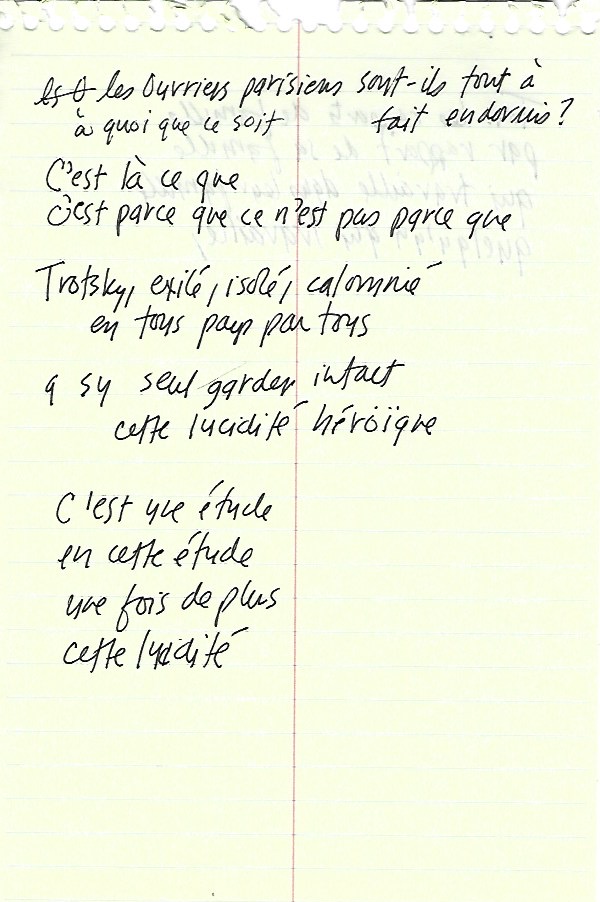 les O les Ouvriers parisiens sont-ils tout à
à quoi que ce soit fait endormis?
C'est là ce que
c'est parce que ce n'est pas parce que
Trotsky, exilé, isolé, calomnié
en tous pays par tous
a su seul garder intact
cette lucidité héroïque
C'est une étude
en cette étude
une fois de plus
cette lucidité